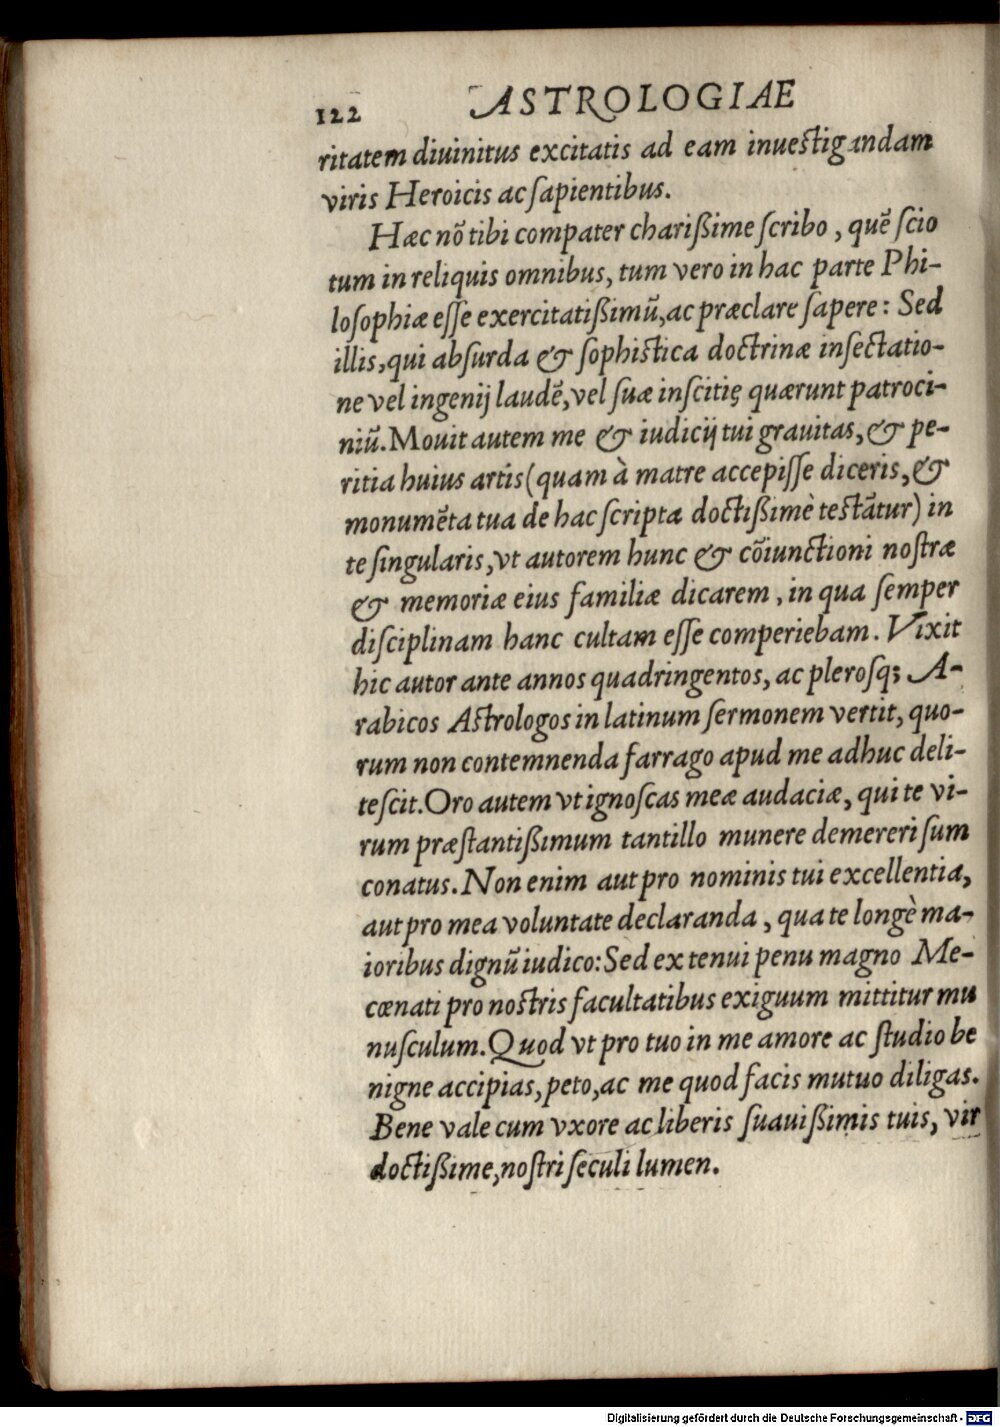 122 ASTROLOGIAE
ritatem diuinitus excitatis ad eam inuestigandam
viris Heroicis ac ſapientibus.
Hæc nō tibi compater charißime ſcribo, quē ſcio
tum in reliquis omnibus, tum vero in hac parte Phi-
loſophiæ eſſe exercitatißimū, ac præclare ſapere: Sed
illis, qui abſurda & ſophistica doctrinæ inſectatio-
ne vel ingenij laudē, vel ſuæ inſcitię quærunt patroci-
niū. Mouit autem me & iudicij tui grauitas, & pe-
ritia huius artis (quam à matre accepiſſe diceris, &
monumēta tua de hac ſcripta doctißimè testātur) in
te ſingularis, vt autorem hunc & cōiunctioni noſtræ
& memoriæ eius familiæ dicarem, in qua ſemper
diſciplinam hanc cultam eſſe comperiebam. Vixit
hic autor ante annos quadringentos, ac pleroſq; A-
rabicos Astrologos in latinum ſermonem vertit, quo-
rum non contemnenda farrago apud me adhuc deli-
teſcit. Oro autem vt ignoſcas meæ audaciæ, qui te vi-
rum præſtantißimum tantillo munere demereri ſum
conatus. Non enim aut pro nominis tui excellentia,
aut pro mea voluntate declaranda, qua te longè ma-
ioribus dignū iudico: Sed ex tenui penu magno Me-
cœnati pro nostris facultatibus exiguum mittitur mu
nuſculum. Quod vt pro tuo in me amore ac ſtudio be
nigne accipias, peto, ac me quod facis mutuo diligas.
Bene vale cum vxore ac liberis ſuauißimis tuis, vir
doctißime, noſtri ſeculi lumen.
Digitalisierung gefördert durch die Deutsche Forschungsgemeinschaft - DFG